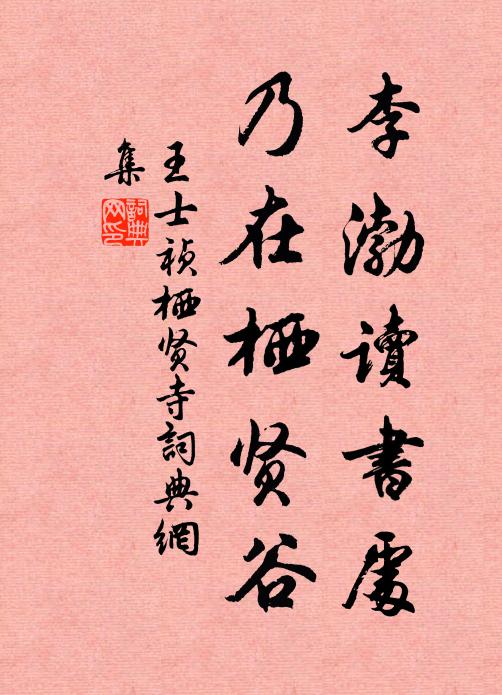 李渤讀書處
乃在栖贤谷
王士禎栖贤寺詞典網
集
詞典網印